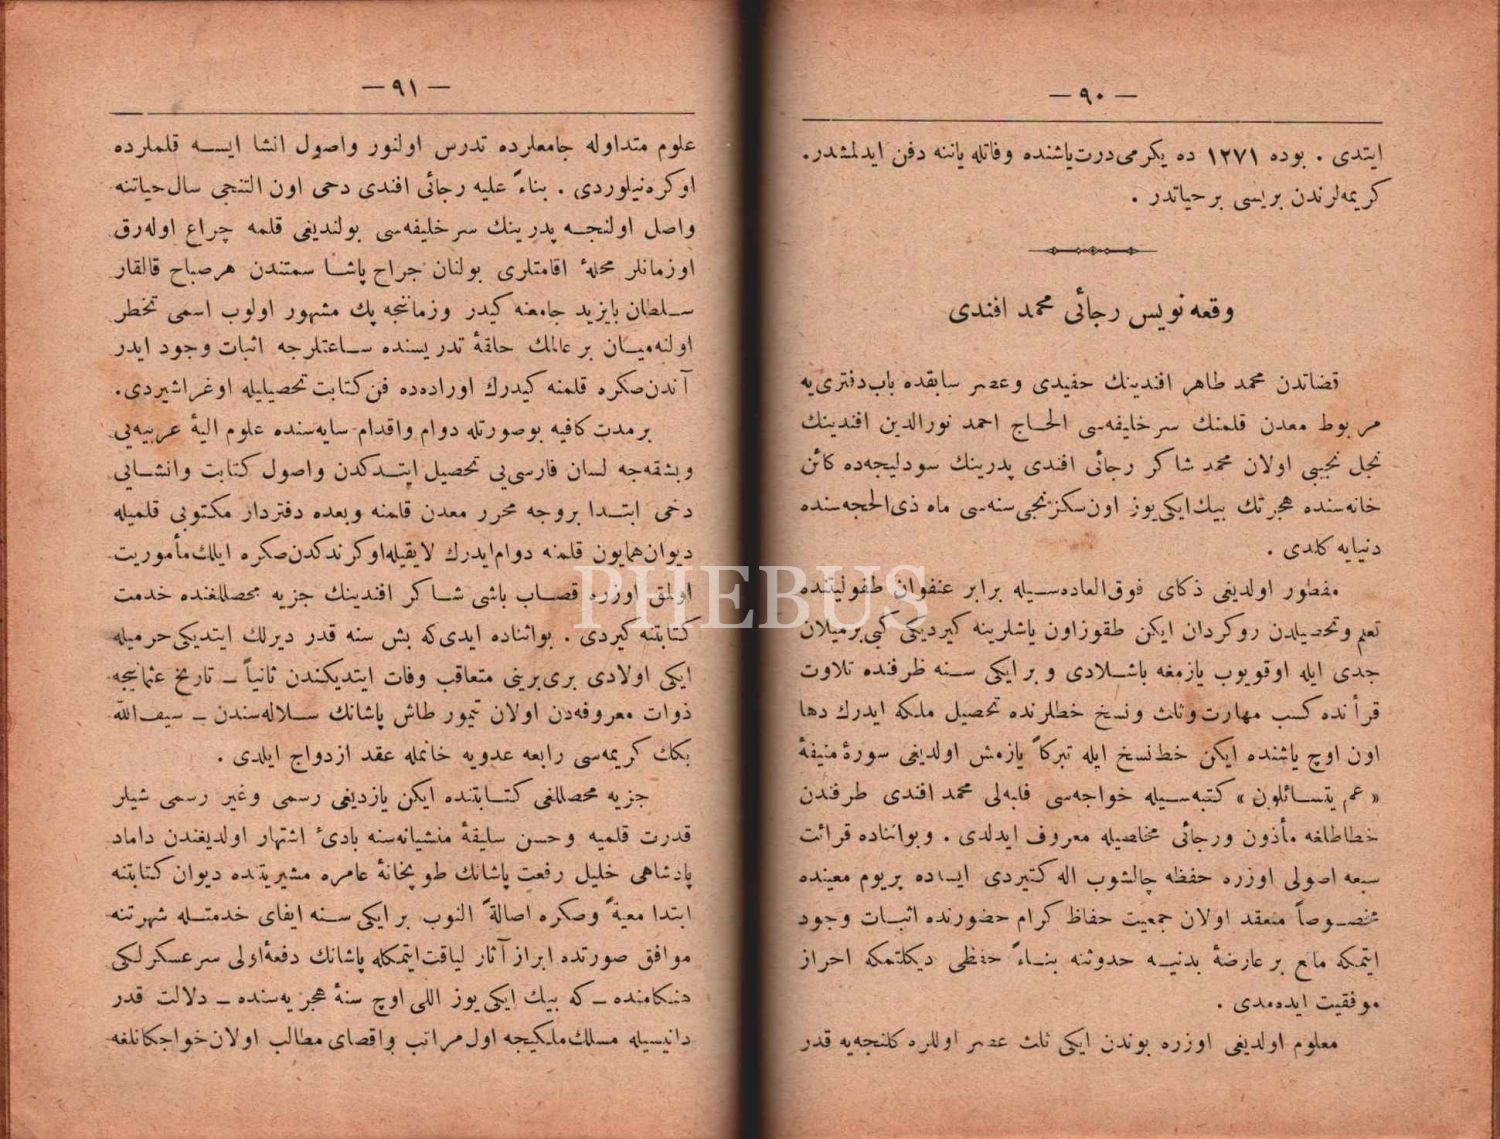 — ٩٠ —
ایتدی . بوده ١٢٧١ ده یکرمی درت یاشنده وفاتله یاننه دفن ایدلمشدر.
کریمه‌لرندن بریسی بر حیاتدر .
وقعه نویس رجائی محمد افندی
قضاتدن محمد طاهر افندینك حفیدی وعصر سابقده باب دفتری‌یه
مربوط معدن قلمنك سرخلیفه‌سی الحاج احمد نورالدین افندینك
نجل نجیبی اولان محمد شاکر رجائی افندی پدرینك سودلیجه‌ده کائن
خانه‌سنده هجرتك بیك ایکی یوز اون سکزنجی سنه‌سی ماه ذی الحجه‌سنده
دنیایه کلدی .
مفطور اولدیغی ذکای فوق العاده‌سیله برابر عنفوان طفولیتنده
تعلم وتحصیلدن روکردان ایکن طقوز اون یاشلرینه کیردیکی کبی برمیلان
جدی ایله اوقویوب یازمغه باشلادی و بر ایکی سنه ظرفنده تلاوت
قرأنده کسب مهارت وثلث ونسخ خطلرنده تحصیل ملکه ایدرك دها
اون اوچ یاشنده ایکن خط نسخ ایله تبرکاً یازمش اولدیغی سورهٔ منیفهٔ
« عم یتسائلون » کتبه‌سیله خواجه‌سی فلبه‌لی محمد افندی طرفندن
خطاطلغه مأذون ورجائی مخلصیله معروف ایدلدی . وبواثناده قرائت
سبعه اصولی اوزره حفظه چالشوب اله کتیردی ایسه‌ده بریوم معینده
مخصوصاً منعقد اولان جمعیت حفاظ کرام حضورنده اثبات وجود
ایتمکه مانع بر عارضهٔ بدنیه حدوثنه بناءً حفظی دیکلتمکه احراز
موفقیت ایده‌مدی .
معلوم اولدیغی اوزره بوندن ایکی ثلث عصر اوللره کلنجه‌یه قدر
— ٩١ —
علوم متداوله جامعلرده تدرس اولنور واصول انشا ایسه قلملرده
اوکره‌نیلوردی . بناءً علیه رجائی افندی دخی اون التنجی سال حیاتنه
واصل اولنجه پدرینك سرخلیفه‌سی بولندیغی قلمه چراغ اوله‌رق
اوزمانلر محلهٔ اقامتلری بولنان جراح پاشا سمتندن هرصباح قالقار
سلطان بایزید جامعنه کیدر وزمانجه پك مشهور اولوب اسمی تخطر
اولنه‌میان بر عالمك حلقهٔ تدریسنده ساعتلرجه اثبات وجود ایدر
آندن صکره قلمنه کیدرك اوراده‌ده فن کتابت تحصیلیله اوغراشیردی.
برمدت کافیه بوصورتله دوام واقدام سایه‌سنده علوم الیهٔ عربیه‌یی
وبشقه‌جه لسان فارسی‌یی تحصیل ایتدکدن واصول کتابت وانشایی
دخی ابتدا بروجه محرر معدن قلمنه وبعده دفتردار مکتوبی قلمیله
دیوان همایون قلمنه دوام ایدرك لایقیله اوکرندکدن صکره ایلك مأموریت
اولمق اوزره قصاب باشی شاکر افندینك جزیه محصللغنده خدمت
کتابتنه کیردی . بواثناده ایدی که بش سنه قدر دیرلك ایتدیکی حرمیله
ایکی اولادی بری برینی متعاقب وفات ایتدیکندن ثانیاً ــ تاریخ عثمانیجه
ذوات معروفه‌دن اولان تیمور طاش پاشانك سلاله‌سندن ــ سیف الله
بكك کریمه‌سی رابعه عدویه خانمله عقد ازدواج ایلدی .
جزیه محصللغی کتابتنده ایکن یازدیغی رسمی وغیر رسمی شیلر
قدرت قلمیه وحسن سلیقهٔ منشیانه‌سنه بادیٔ اشتهار اولدیغندن داماد
پادشاهی خلیل رفعت پاشانك طوپخانهٔ عامره مشیریتنده دیوان کتابتنه
ابتدا معیةً وصکره اصالةً النوب بر ایکی سنه ایفای خدمتله شهرتنه
موافق صورتده ابراز آثار لیاقت ایتمکله پاشانك دفعهٔ اولی سرعسکرلکی
هنکامنده ــ که بیك ایکی یوز اللی اوچ سنهٔ هجریه‌سنده ــ دلالت قدر
دانیسیله مسلك ملکیجه اول مراتب واقصای مطالب اولان خواجکانلغه
PHEBUS